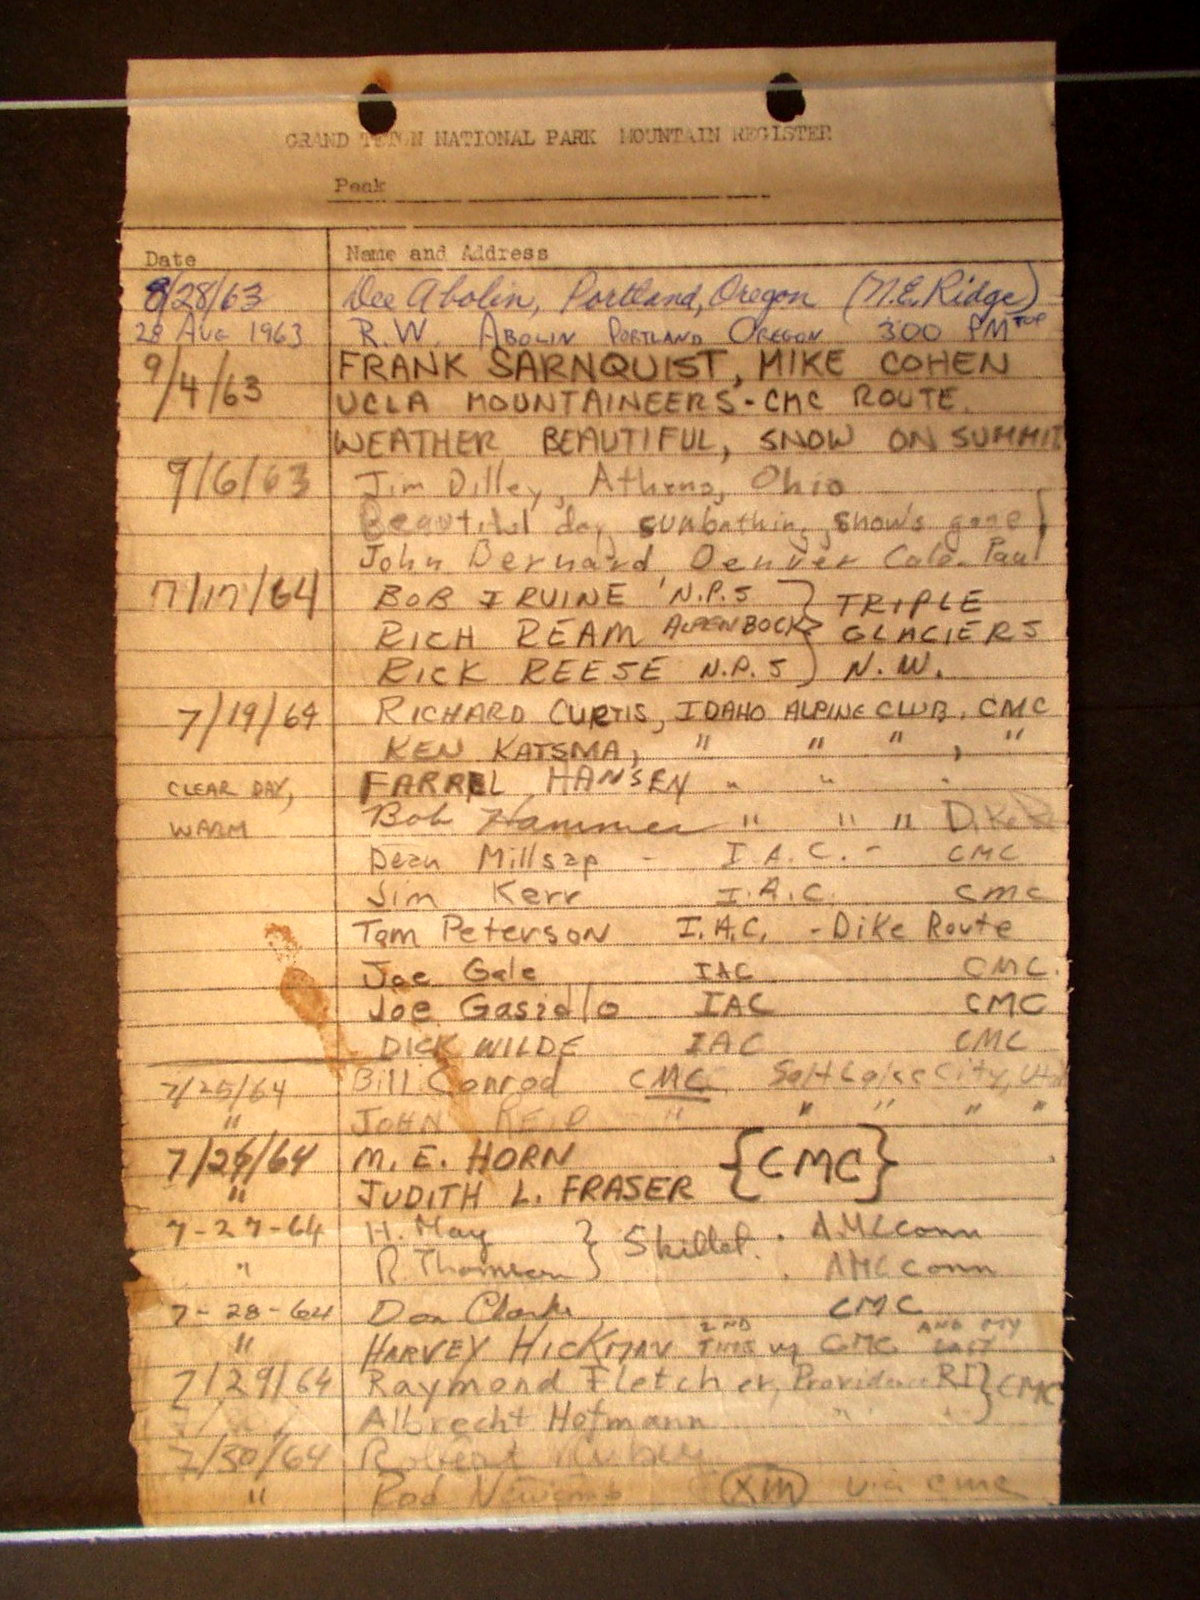 GRAND TETON NATIONAL PARK MOUNTAIN REGISTER
Peak
Date Name and Address
8/28/63 Dee Abolin, Portland, Oregon (N.E. Ridge)
28 Aug 1963 R.W. Abolin Portland Oregon 300 PM
9/4/63 FRANK SARNQUIST, MIKE COHEN
UCLA MOUNTAINEERS - CMC ROUTE.
WEATHER BEAUTIFUL, SNOW ON SUMMIT
9/6/63 Jim Dilley, Athens, Ohio
Beautiful day, sunbathing, snows gone!
John Bernard Denver Colo.
7/17/64 BOB IRVINE N.P.S } TRIPLE
RICH REAM ALPENBOCK } GLACIERS
RICK REESE N.P.S } N.W.
7/19/64 RICHARD CURTIS, IDAHO ALPINE CLUB, CMC
KEN KATSMA, " " " , "
CLEAR DAY, FARREL HANSEN " " "
WARM Bob Hammer " " " Dike
Dean Millsap - I.A.C. - CMC
Jim Kerr I.A.C. CMC
Tom Peterson I.A.C. - Dike Route
Joe Gale IAC CMC.
Joe IAC CMC
DICK WILDE IAC CMC
7/25/64 Bill Conrod CMC Salt Lake City, Utah
" JOHN REID " " " " "
7/26/64 M. E. HORN {CMC}
" JUDITH L. FRASER
7-27-64 H. May } Skillet. AMC conn
" R. Thomson } AMC conn
7-28-64 Don Clarke CMC
" HARVEY HICKMAN 2ND TIME up CMC AND MY LAST
7/29/64 Raymond Fletcher, Providence RI } CMC
Albrecht Hofmann " "
7/30/64 Robert
" Rod Newcomb XM via cmc